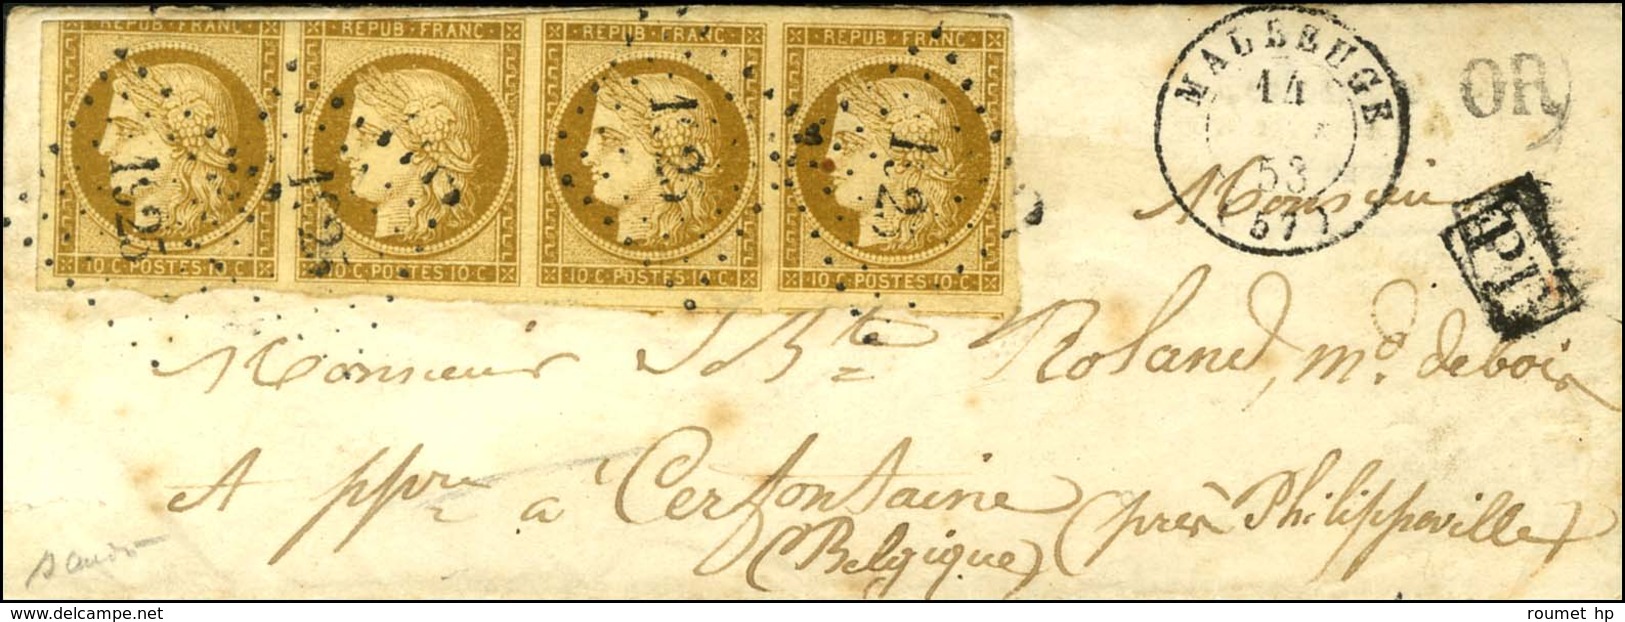 REPUB·FRANC· REPUB·FRANC· REPUB·FRANC· REPUB·FRANC·
1925 1925 1925 1925
10·C·POSTES·10·C· 10·C·POSTES·10·C· 10·C·POSTES·10·C· 10·C·POSTES·10·C·
MAUBEUGE
14
53
(57)
OR
PD
Monsieur
Monsieur J Bte Roland, md. de bois
A ppre à Cerfontaine (près Philippeville)
(Belgique)
roumet hp